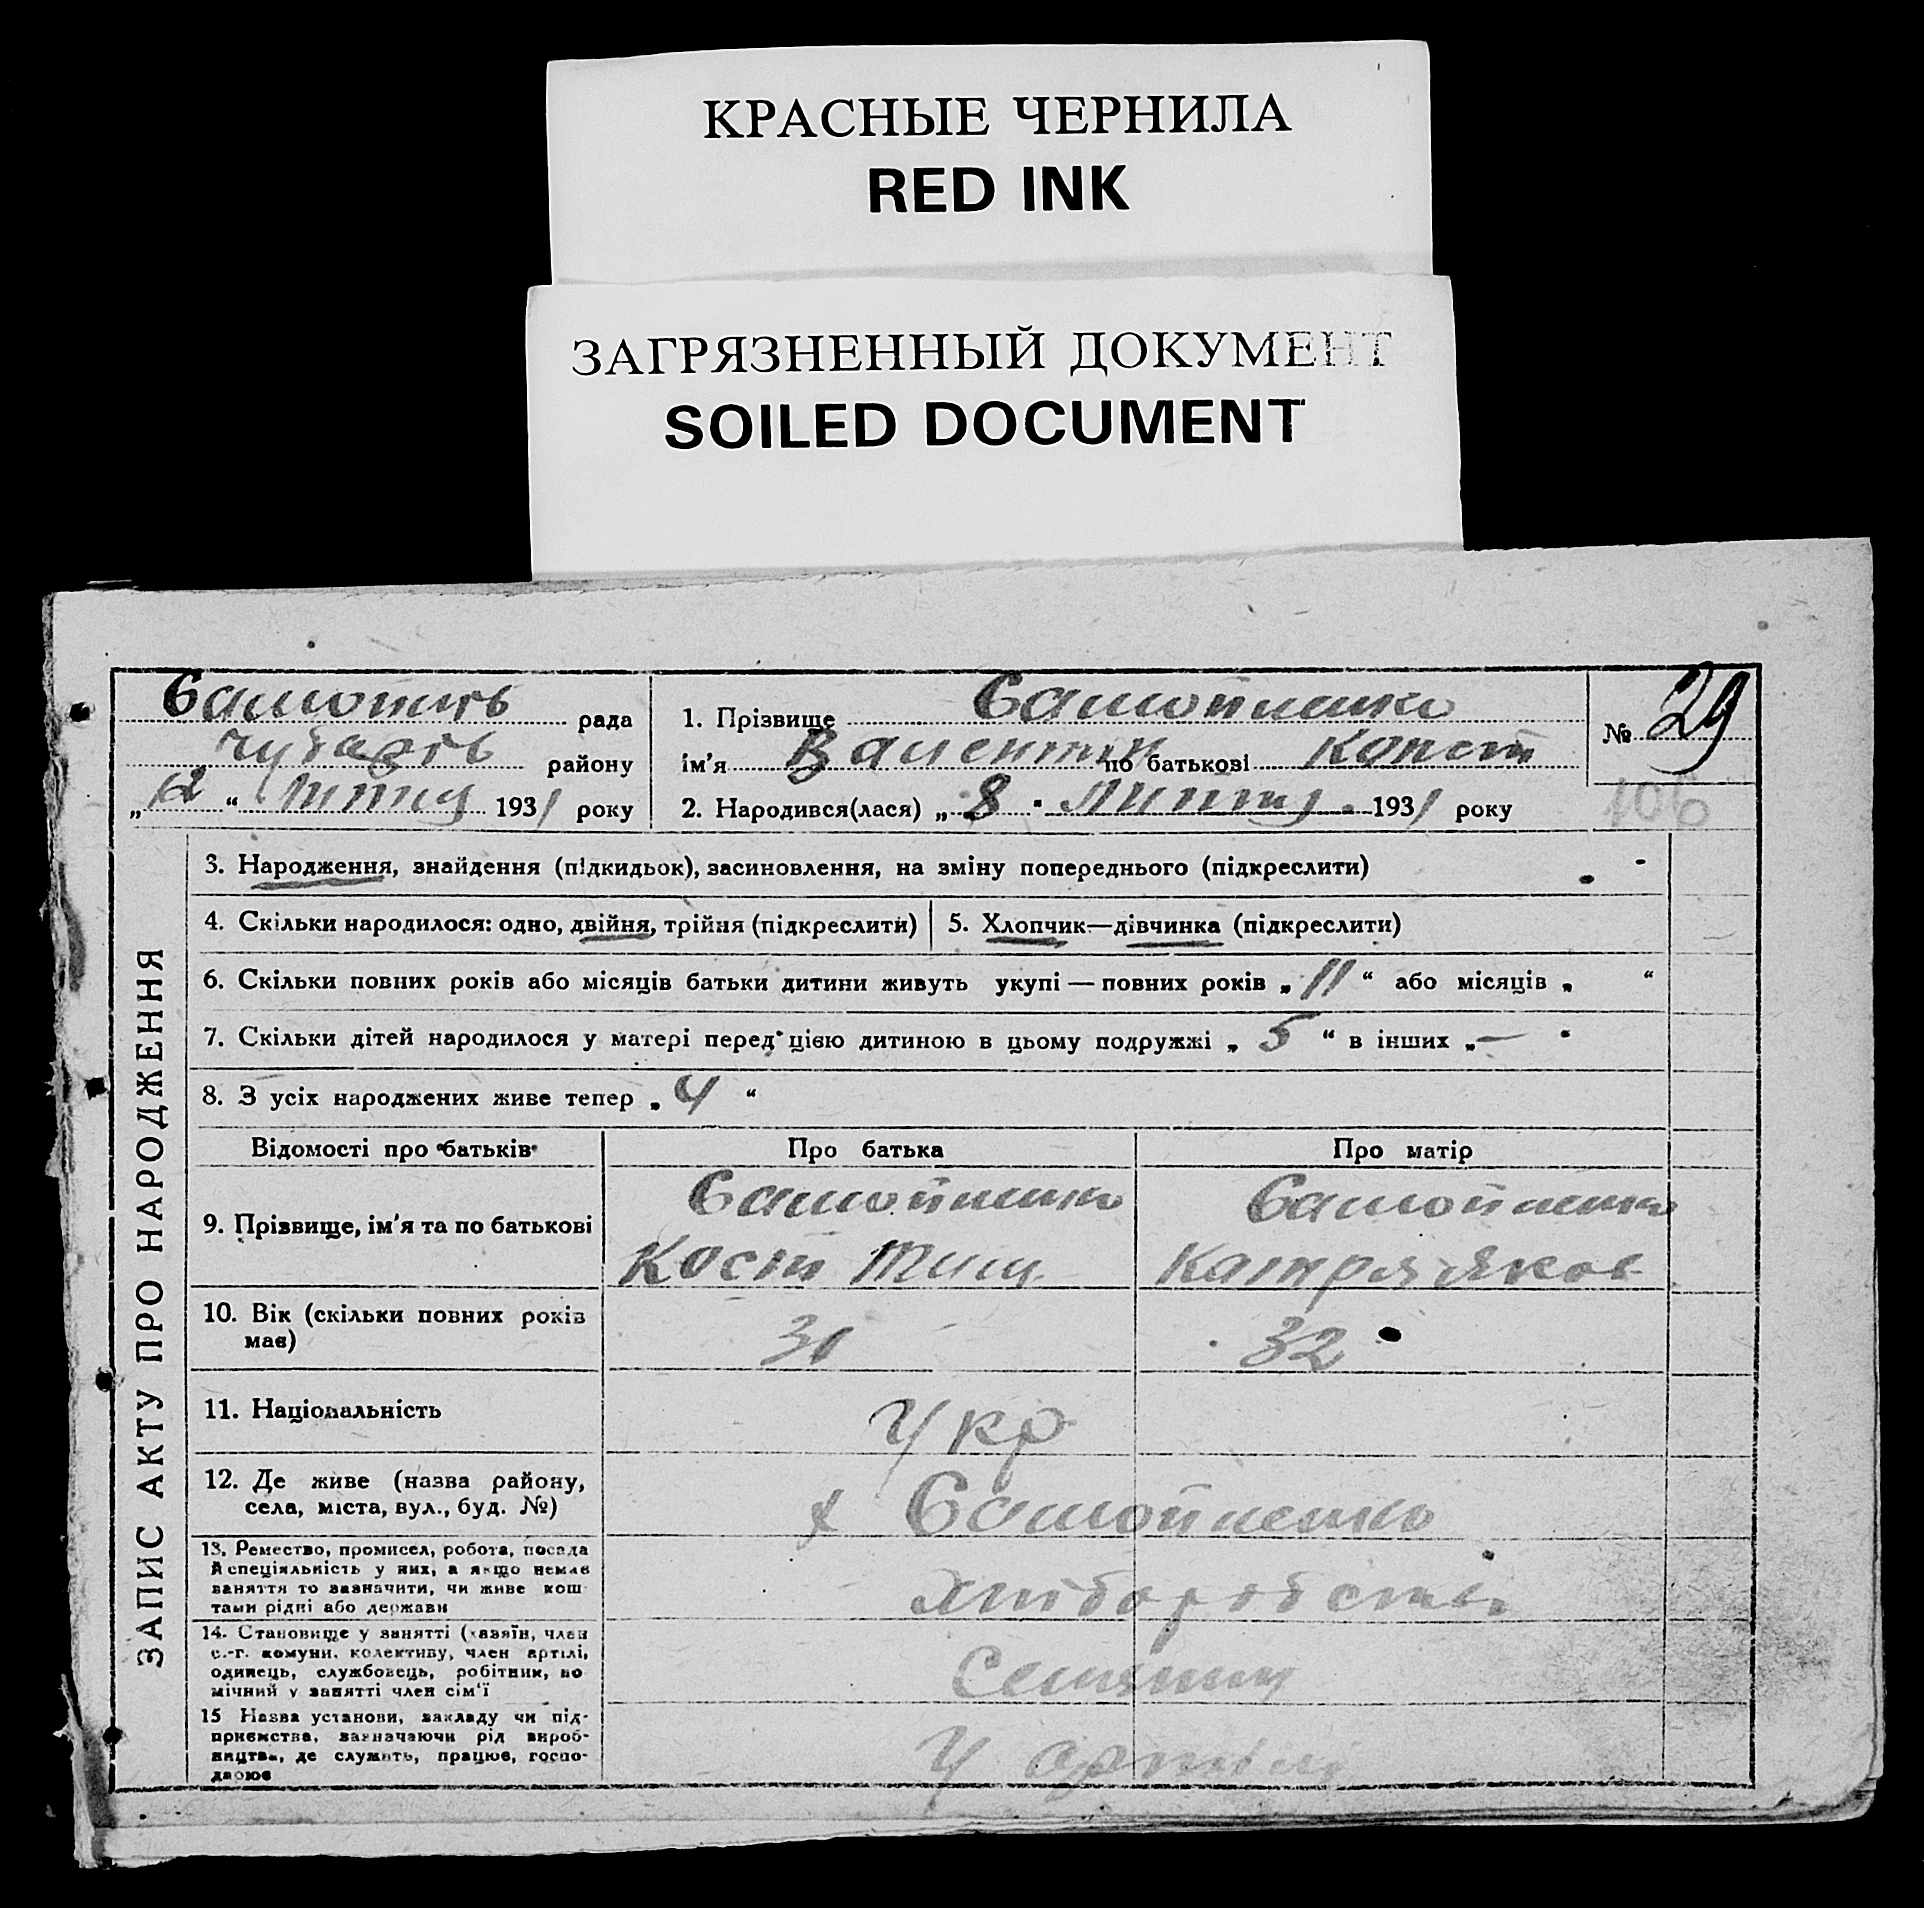 КРАСНЫЕ ЧЕРНИЛА
RED INK
ЗАГРЯЗНЕННЫЙ ДОКУМЕНТ
SOILED DOCUMENT
ЗАПИС АКТУ ПРО НАРОДЖЕННЯ
рада
району
„12“ 1931 року
1. Прізвище Самойленко
ім'я Валентин по батькові Конст
2. Народився(лася) „8“ Липня 1931 року
№ 29
106
3. Народження, знайдення (підкидьок), засиновлення, на зміну попереднього (підкреслити)
4. Скільки народилося: одно, двійня, трійня (підкреслити)
5. Хлопчик—дівчинка (підкреслити)
6. Скільки повних років або місяців батьки дитини живуть укупі — повних років „11“ або місяців „ “
7. Скільки дітей народилося у матері перед цією дитиною в цьому подружжі „5“ в інших „—“
8. З усіх народжених живе тепер „4“
Відомості про батьків
Про батька
Про матір
9. Прізвище, ім'я та по батькові
Самойленко
Кост Тим
Самойленко
Катря Яков
10. Вік (скільки повних років
має)
31
32
11. Національність
Укр
12. Де живе (назва району,
села, міста, вул., буд. №)
х Самойленко
13. Ремество, промисел, робота, посада
й спеціяльність у них, а якщо немає
заняття то зазначити, чи живе кош-
тами рідні або держави
хліборобств
14. Становище у занятті (хазяїн, член
с.-г. комуни, колективу, член артілі,
одинець, службовець, робітник, по-
мічний у занятті член сім'ї
15 Назва установи, закладу чи під-
приємства, зазначаючи рід вироб-
ництва, де служить, працює, госпо-
дарює
У артілі